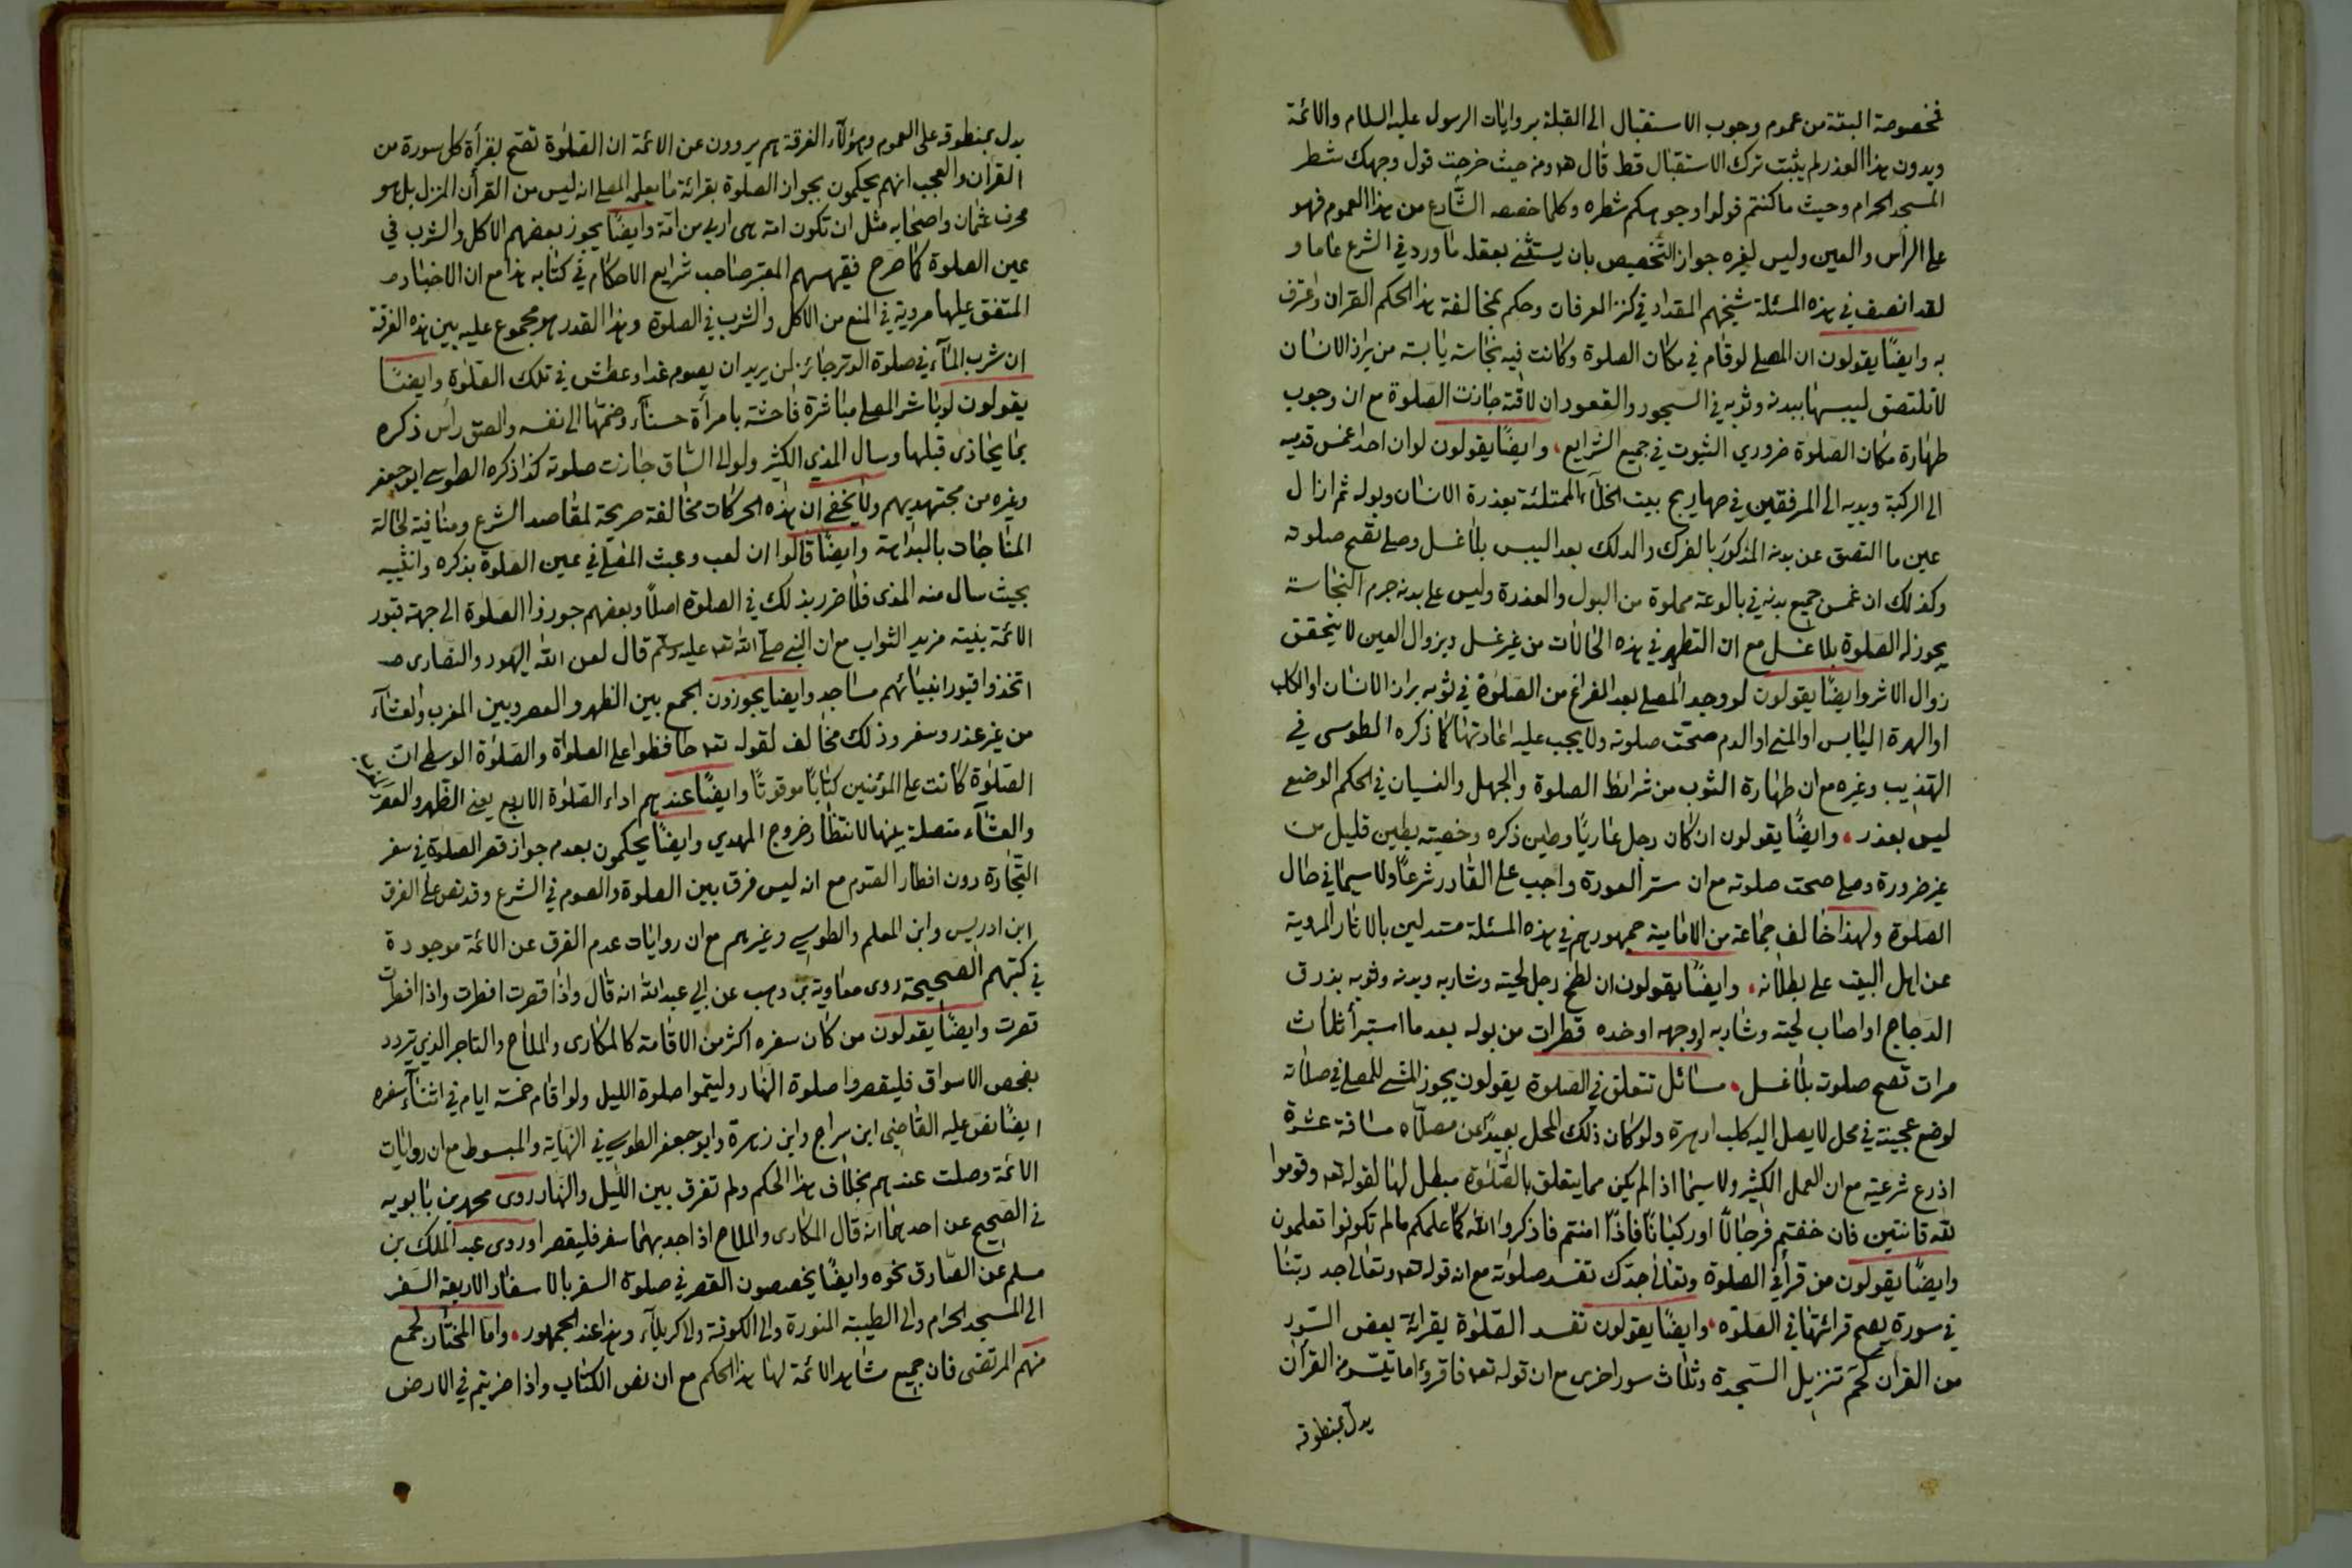 فخصوصة البتة من عموم وجوب الاستقبال الى القبلة بروايات الرسول عليه السلام والائمة
وبدون هذا العذر لم يثبت ترك الاستقبال قط قال ومن حيث خرجت فول وجهك شطر
المسجد الحرام وحيث ما كنتم فولوا وجوهكم شطره وكلما خصصه الشارع من هذا العموم فهو
على الرأس والعين وليس لغيره جواز التخصيص بان يستثنى بعقله ما ورد في الشرع عاما و
لقد انصف في هذه المسئلة شيخهم المقداد في كنز العرفان وحكم بمخالفة هذا الحكم القران واعترف
به وايضًا يقولون ان المصلي لو قام في مكان الصلوة وكانت فيه نجاسة يابسة من براز الانسان
لا تلتصق ليبسها ببدنه وثوبه في السجود والقعود ان لاقته جازت الصلوة مع ان وجوب
طهارة مكان الصلوة ضروري الثبوت في جميع الشرايع، وايضًا يقولون لو ان احدا غمس قدميه
الى الركبة ويديه الى المرفقين في صهاريج بيت الخلاء الممتلئة بعذرة الانسان وبوله ثم ازال
عين ما التصق عن بدنه المذكور بالفرك والدلك بعد اليبس بلا غسل وصلى تصح صلوته
وكذلك ان غمس جميع بدنه في بالوعة مملوة من البول والعذرة وليس على بدنه جرم النجاسة
يجوز له الصلوة بلا غسل مع ان التطهر في هذه الحالات من غير غسل وبزوال العين لا يتحقق
زوال الاثر وايضًا يقولون لو وجد المصلي بعد الفراغ من الصلوة في ثوبه براز الانسان او الكلب
او الهرة اليابس او المني او الدم صحت صلوته ولا يجب عليه اعادتها كما ذكره الطوسي في
التهذيب وغيره مع ان طهارة الثوب من شرائط الصلوة والجهل والنسيان في الحكم الوضعي
ليس بعذر. وايضًا يقولون ان كان رجل عاريًا وطين ذكره وخصيته بطين قليل من
غير ضرورة وصلى صحت صلوته مع ان ستر العورة واجب على القادر شرعًا ولا سيما في حال
الصلوة ولهذا خالف جماعة من الامامية جمهورهم في هذه المسئلة مستدلين بالاثار المروية
عن اهل البيت على بطلانه. وايضًا يقولون ان لطخ رجل لحيته وشاربه وبدنه وثوبه بذرق
الدجاج او اصاب لحيته وشاربه او وجهه او خده قطرات من بوله بعد ما استبرأ ثلاث
مرات تصح صلوته بلا غسل. مسائل تتعلق في الصلوة يقولون يجوز المشي للمصلي في صلاته
لوضع عجينة في محل لا يصل اليه كلب او هرة ولو كان ذلك المحل بعيدًا عن مصلاه مسافة عشرة
اذرع شرعية مع ان العمل الكثير ولا سيما اذا لم يكن مما يتعلق بالصلوة مبطل لها لقوله تعه وقوموا
لله قانتين فان خفتم فرجالًا او ركبانًا فاذا امنتم فاذكروا الله كما علمكم ما لم تكونوا تعلمون
وايضًا يقولون من قرأ في الصلوة وتعالى جدك تفسد صلوته مع ان قوله تعه وتعالى جد ربنا
في سورة يصح قرائتها في الصلوة. وايضًا يقولون تفسد الصلوة بقرائة بعض السور
من القران كحم تنزيل السجدة وثلاث سور اخرى مع ان قوله تعه فاقرؤا ما تيسر من القرآن
يدل بمنطوقه
يدل بمنطوقه على العموم وهؤلاء الفرقة هم يروون عن الائمة ان الصلوة تصح بقرأة كل سورة من
القران والعجب انهم يحكمون بجواز الصلوة بقرائة ما يعلم المصلي انه ليس من القرأن المنزل بل هو
محرف عثمان واصحابه مثل ان تكون امة هى اربى من امة وايضًا يجوز بعضهم الاكل والشرب في
عين الصلوة كما صرح فقيههم المعتبر صاحب شرايع الاحكام في كتابه هذا مع ان الاخبار
المتفق عليها مروية في المنع من الاكل والشرب في الصلوة وهذا القدر هو مجموع عليه بين هذه الفرقة
ان شرب الماء في صلوة الوتر جائز لمن يريد ان يصوم غدا وعطش في تلك الصلوة وايضًا
يقولون لو باشر المصلي مباشرة فاحشة بامرأة حسناء وضمها الى نفسه والصق رأس ذكره
بما يحاذى قبلها وسال المذي الكثير ولو الى الساق جازت صلوته كذا ذكره الطوسي ابو جعفر
وغيره من مجتهديهم ولا يخفى ان هذه الحركات مخالفة صريحة لمقاصد الشرع ومنافية لحالة
المناجات بالبداهة وايضًا قالوا ان لعب وعبث المصلي في عين الصلوة بذكره وانثييه
بحيث سال منه المذى فلا ضرر بذلك في الصلوة اصلًا وبعضهم جوزوا الصلوة الى جهة قبور
الائمة بنية مزيد الثواب مع ان النبي صلى الله تعه عليه وسلم قال لعن الله اليهود والنصارى
اتخذوا قبور انبيائهم مساجد وايضا يجوزون الجمع بين الظهر والعصر وبين المغرب والعشاء
من غير عذر وسفر وذلك مخالف لقوله تعه حافظوا على الصلوة والصلوة الوسطى ان
الصلوة كانت على المؤمنين كتابًا موقوتًا وايضًا عندهم اداء الصلوة الاربع يعني الظهر والعصر
والمغرب
والعشاء متصلة بينها لانتظار خروج المهدي وايضًا يحكمون بعدم جواز قصر الصلوة في سفر
التجارة دون افطار الصوم مع انه ليس فرق بين الصلوة والصوم في الشرع وقد نص على الفرق
ابن ادريس وابن المعلم والطوسي وغيرهم مع ان روايات عدم الفرق عن الائمة موجودة
في كتبهم الصحيحة روى معاوية بن وهب عن ابي عبد الله انه قال واذا قصرت افطرت واذا افطرت
قصرت وايضًا يقولون من كان سفره اكثر من الاقامة كالمكارى والملاح والتاجر الذي يتردد
بفحص الاسواق فليقصروا صلوة النهار وليتموا صلوة الليل ولو اقام خمسة ايام في اثناء سفره
ايضًا نص عليه القاضي ابن سراج وابن زهرة وابو جعفر الطوسي في النهاية والمبسوط مع ان روايات
الائمة وصلت عندهم بخلاف هذا الحكم ولم تفرق بين الليل والنهار روى محمد بن بابويه
في الصحيح عن احدهما انه قال المكارى والملاح اذا جد بهما سفر فليقصرا وروى عبد الملك بن
مسلم عن الصادق نحوه وايضًا يخصصون القصر في صلوة السفر بالاسفار الاربعة السفر
الى المسجد الحرام والى الطيبة المنورة والى الكوفة والى كربلاء وهذا عند الجمهور. واما المختار لجمع
منهم المرتضى فان جميع مشاهد الائمة لها هذا الحكم مع ان نص الكتاب واذا ضربتم في الارض